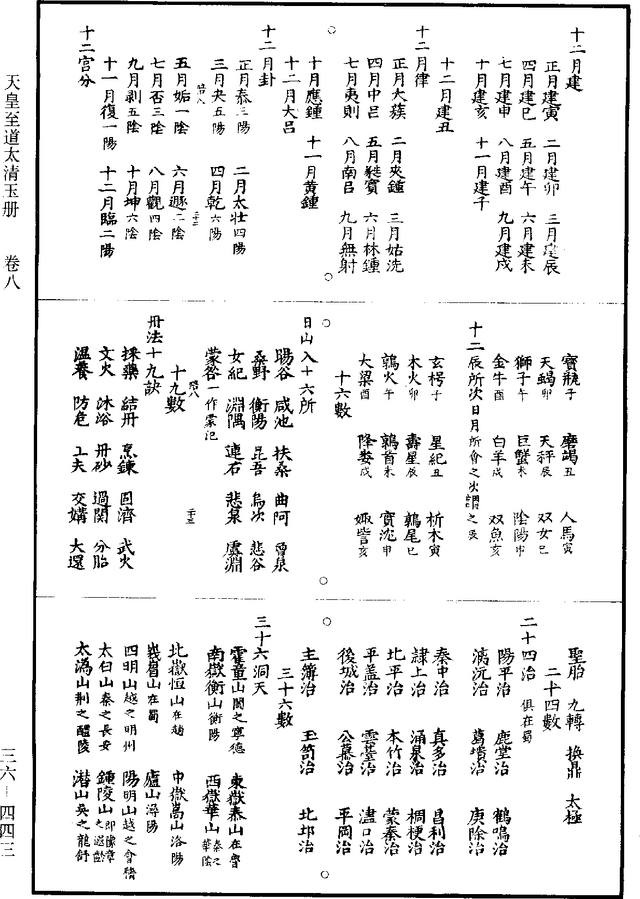 天皇至道太清玉册　卷八
三六—四四三
十二月建
正月建寅　二月建卯　三月建辰
四月建巳　五月建午　六月建未
七月建申　八月建酉　九月建戌
十月建亥　十一月建子
十二月建丑
十二月律
正月大蔟　二月夾鍾　三月姑洗
四月中呂　五月蕤賓　六月林鍾
七月夷則　八月南呂　九月無射
十月應鍾　十一月黃鍾
十二月大呂
十二月卦
正月泰三陽　二月太壯四陽
三月夬五陽　四月乾六陽
陪八　二十二
五月姤一陰　六月遯二陰
七月否三陰　八月觀四陰
九月剥五陰　十月坤六陰
十一月復一陽　十二月臨二陽
十二宫分
寶瓶子　磨竭丑　人馬寅
天蝎卯　天秤辰　双女巳
獅子午　巨蟹未　陰陽申
金牛酉　白羊戌　双魚亥
十二辰所次日月所會之次謂之辰
玄枵子　星紀丑　析木寅
木火卯　壽星辰　鶉尾巳
鶉火午　鶉首未　實沈申
大梁酉　降婁戌　娵訾亥
十六數
日山入十六所
暘谷　咸池　扶桑　曲阿　曾泉
桑野　衡陽　昆吾　烏次　悲谷
女紀　淵隅　連石　悲泉　虞淵
蒙谷一作蒙汜
陪八　二十三
十九數
丹法十九訣
採藥　結丹　烹鍊　固濟　武火
文火　沐浴　丹砂　過関　分胎
温養　防危　工夫　交媾　大還
聖胎　九轉　換鼎　太極
二十四數
二十四治　俱在蜀
陽平治　鹿堂治　鶴鳴治
漓沅治　葛璝治　庚除治
秦中治　真多治　昌利治
隷上治　涌泉治　稠梗治
北平治　本竹治　蒙秦治
平盖治　雲臺治　濜口治
後城治　公慕治　平岡治
主簿治　玉笥治　北邙治
三十六數
三十六洞天
霍童山閩之寧德　東嶽泰山在魯
南嶽衡山衡陽　西嶽華山秦之華陰
北嶽恒山在趙　中嶽嵩山洛陽
峩嵋山在蜀　廬山潯陽
四明山越之明州　陽明山越之會稽
太白山秦之長安　鍾陵山即豫章之
太潙山荆之醴陵　潜山吳之龍舒